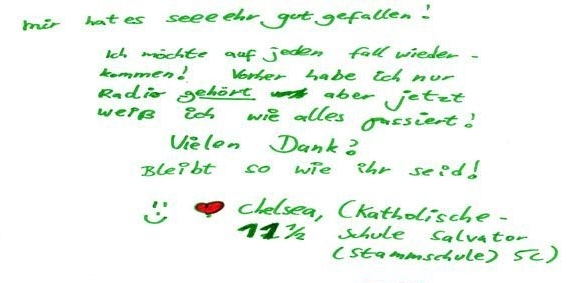 mir hat es seeeehr gut gefallen!
Ich möchte auf jeden fall wieder-
kommen! Vorher habe ich nur
Radio gehört aber jetzt
weiß ich wie alles passiert!
Vielen Dank!
Bleibt so wie ihr seid!
Chelsea, (Katholische-
11 1/2 Schule Salvator
(Stammschule) 5c)